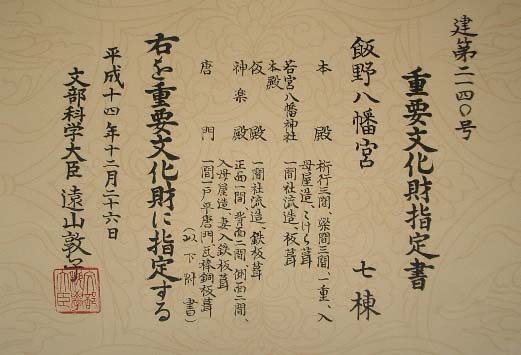 建第二一四〇号
重要文化財指定書
飯野八幡宮 七棟
本殿 桁行三間、梁間三間、一重、入
母屋造、こけら葺
若宮八幡神社
本殿 一間社流造、板葺
仮殿 一間社流造、鉄板葺
神楽殿 正面一間、背面二間、側面二間、
入母屋造、妻入、鉄板葺
唐門 一間一戸平唐門、瓦棒銅板葺
(以下附書)
右を重要文化財に指定する
平成十四年十二月二十六日
文部科学大臣 遠山敦子